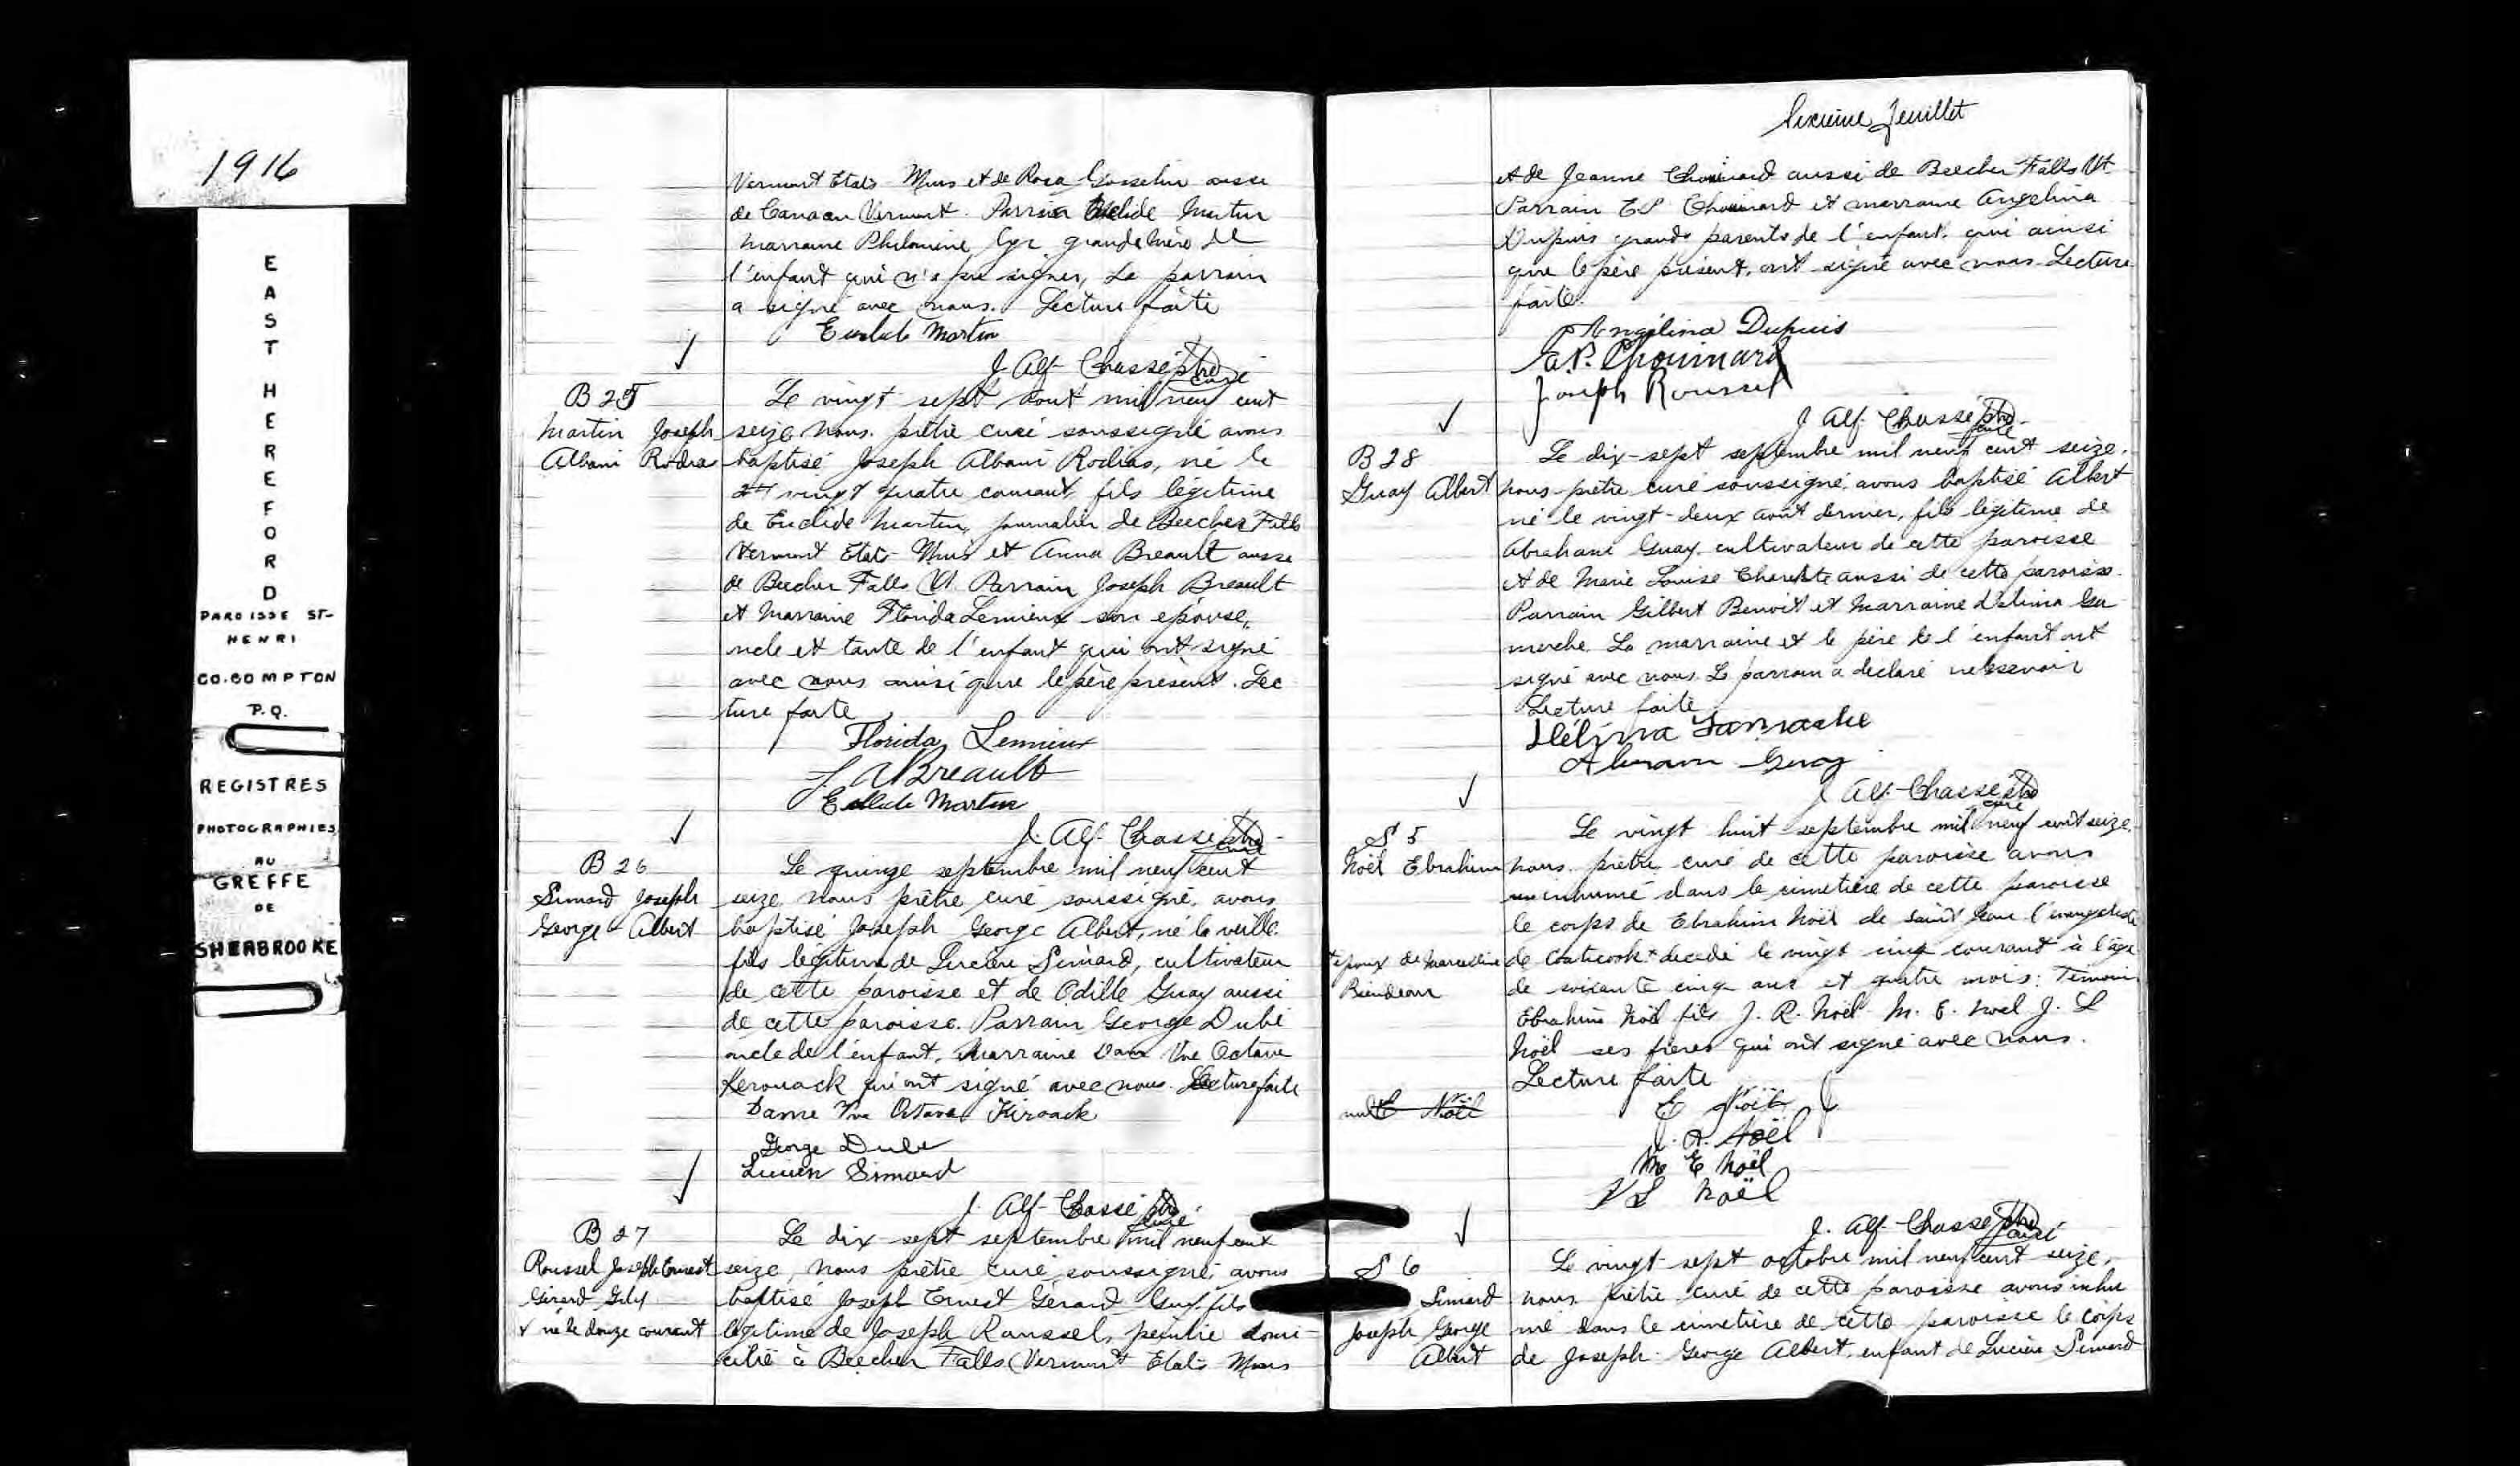 1916
EAST HEREFORD
PAROISSE ST-
HENRI
CO. COMPTON
P.Q.
REGISTRES
PHOTOGRAPHIES
AU
GREFFE
DE
SHERBROOKE
Vermont Etats-Unis et de Rosa Gosselin aussi
de Canaan Vermont. Parrain Euclide Martin
marraine Philomène Cyr grande mère de
l'enfant qui n'a pu signer, Le parrain
a signé avec nous. Lecture faite
Euclide Martin
J. Alf. Chassé ptre
curé
B 25
Martin Joseph
Albani Rodias
Le vingt sept août mil neuf cent
seize nous prêtre curé soussigné avons
baptisé Joseph Albani Rodias, né le
vingt quatre courant, fils légitime
de Euclide Martin, journalier de Beecher Falls
Vermont Etats-Unis et Anna Breault aussi
de Beecher Falls Vt. Parrain Joseph Breault
et Marraine Florida Lemieux son épouse,
oncle et tante de l'enfant qui ont signé
avec nous ainsi que le père présent. Lec
ture faite
Florida Lemieux
J. A Breault
Euclide Martin
J. Alf. Chassé ptre
curé
B 26
Simard Joseph
George Albert
Le quinze septembre mil neuf cent
seize nous prêtre curé soussigné, avons
baptisé Joseph George Albert, né la veille
fils légitime de Lucien Simard, cultivateur
de cette paroisse et de Odille Guay aussi
de cette paroisse. Parrain George Dubé
oncle de l'enfant, Marraine Dame Vve Octave
Kerouack qui ont signé avec nous. Lecture faite
Dame Vve Octave Kiroack
George Dube
Lucien Simard
J. Alf. Chassé ptre
curé
B 27
Roussel Joseph Ernest
Gérard Guy
+ né le douze courant
Le dix sept septembre mil neuf cent
seize, nous prêtre curé soussigné, avons
baptisé Joseph Ernest Gérard Guy, fils
légitime de Joseph Roussel, peintre domi-
cilié à Beecher Falls Vermont Etats Unis
Sixième feuillet
et de Jeanne Chouinard aussi de Beecher Falls Vt.
Parrain E.P. Chouinard et marraine Angelina
Dupuis grands parents de l'enfant, qui ainsi
que le père présent, ont signé avec nous. Lecture
faite.
Angélina Dupuis
E.P. Chouinard
Joseph Roussel
J. Alf. Chassé ptre
curé
B 28
Guay Albert
Le dix-sept septembre mil neuf cent seize.
nous prêtre curé soussigné, avons baptisé Albert
né le vingt-deux août dernier, fils légitime de
Abraham Guay, cultivateur de cette paroisse
et de Marie Louise aussi de cette paroisse.
Parrain Gilbert Benoit et marraine Delima Ga
mache La marraine et le père de l'enfant ont
signé avec nous. Le parrain a déclaré ne le savoir
Lecture faite
Délima Gamache
Abraam Guay
J. Alf. Chassé ptre
curé
S 5
Noël Ebrahim
Le vingt huit septembre mil neuf cent seize,
nous prêtre curé de cette paroisse avons
inhumé dans le cimetière de cette paroisse
le corps de Ebrahim Noël de Saint Jean l'évangéliste
de Coaticook + décédé le vingt cinq courant à l'âge
+ époux de Marcelline
de soixante cinq ans et quatre mois: Témoins
Ebrahim Noël fils J. R. Noël M. E. Noel J. L
Noël ses frères qui ont signé avec nous.
Lecture faite
E Noël
E Noël
J. R. Noël
M E Noël
J L Noël
J. Alf. Chassé ptre
curé
S 6
Simard
Joseph George
Albert
Le vingt sept octobre mil neuf cent seize,
nous prêtre curé de cette paroisse avons inhu
mé dans le cimetière de cette paroisse le corps
de Joseph George Albert, enfant de Lucien Simard